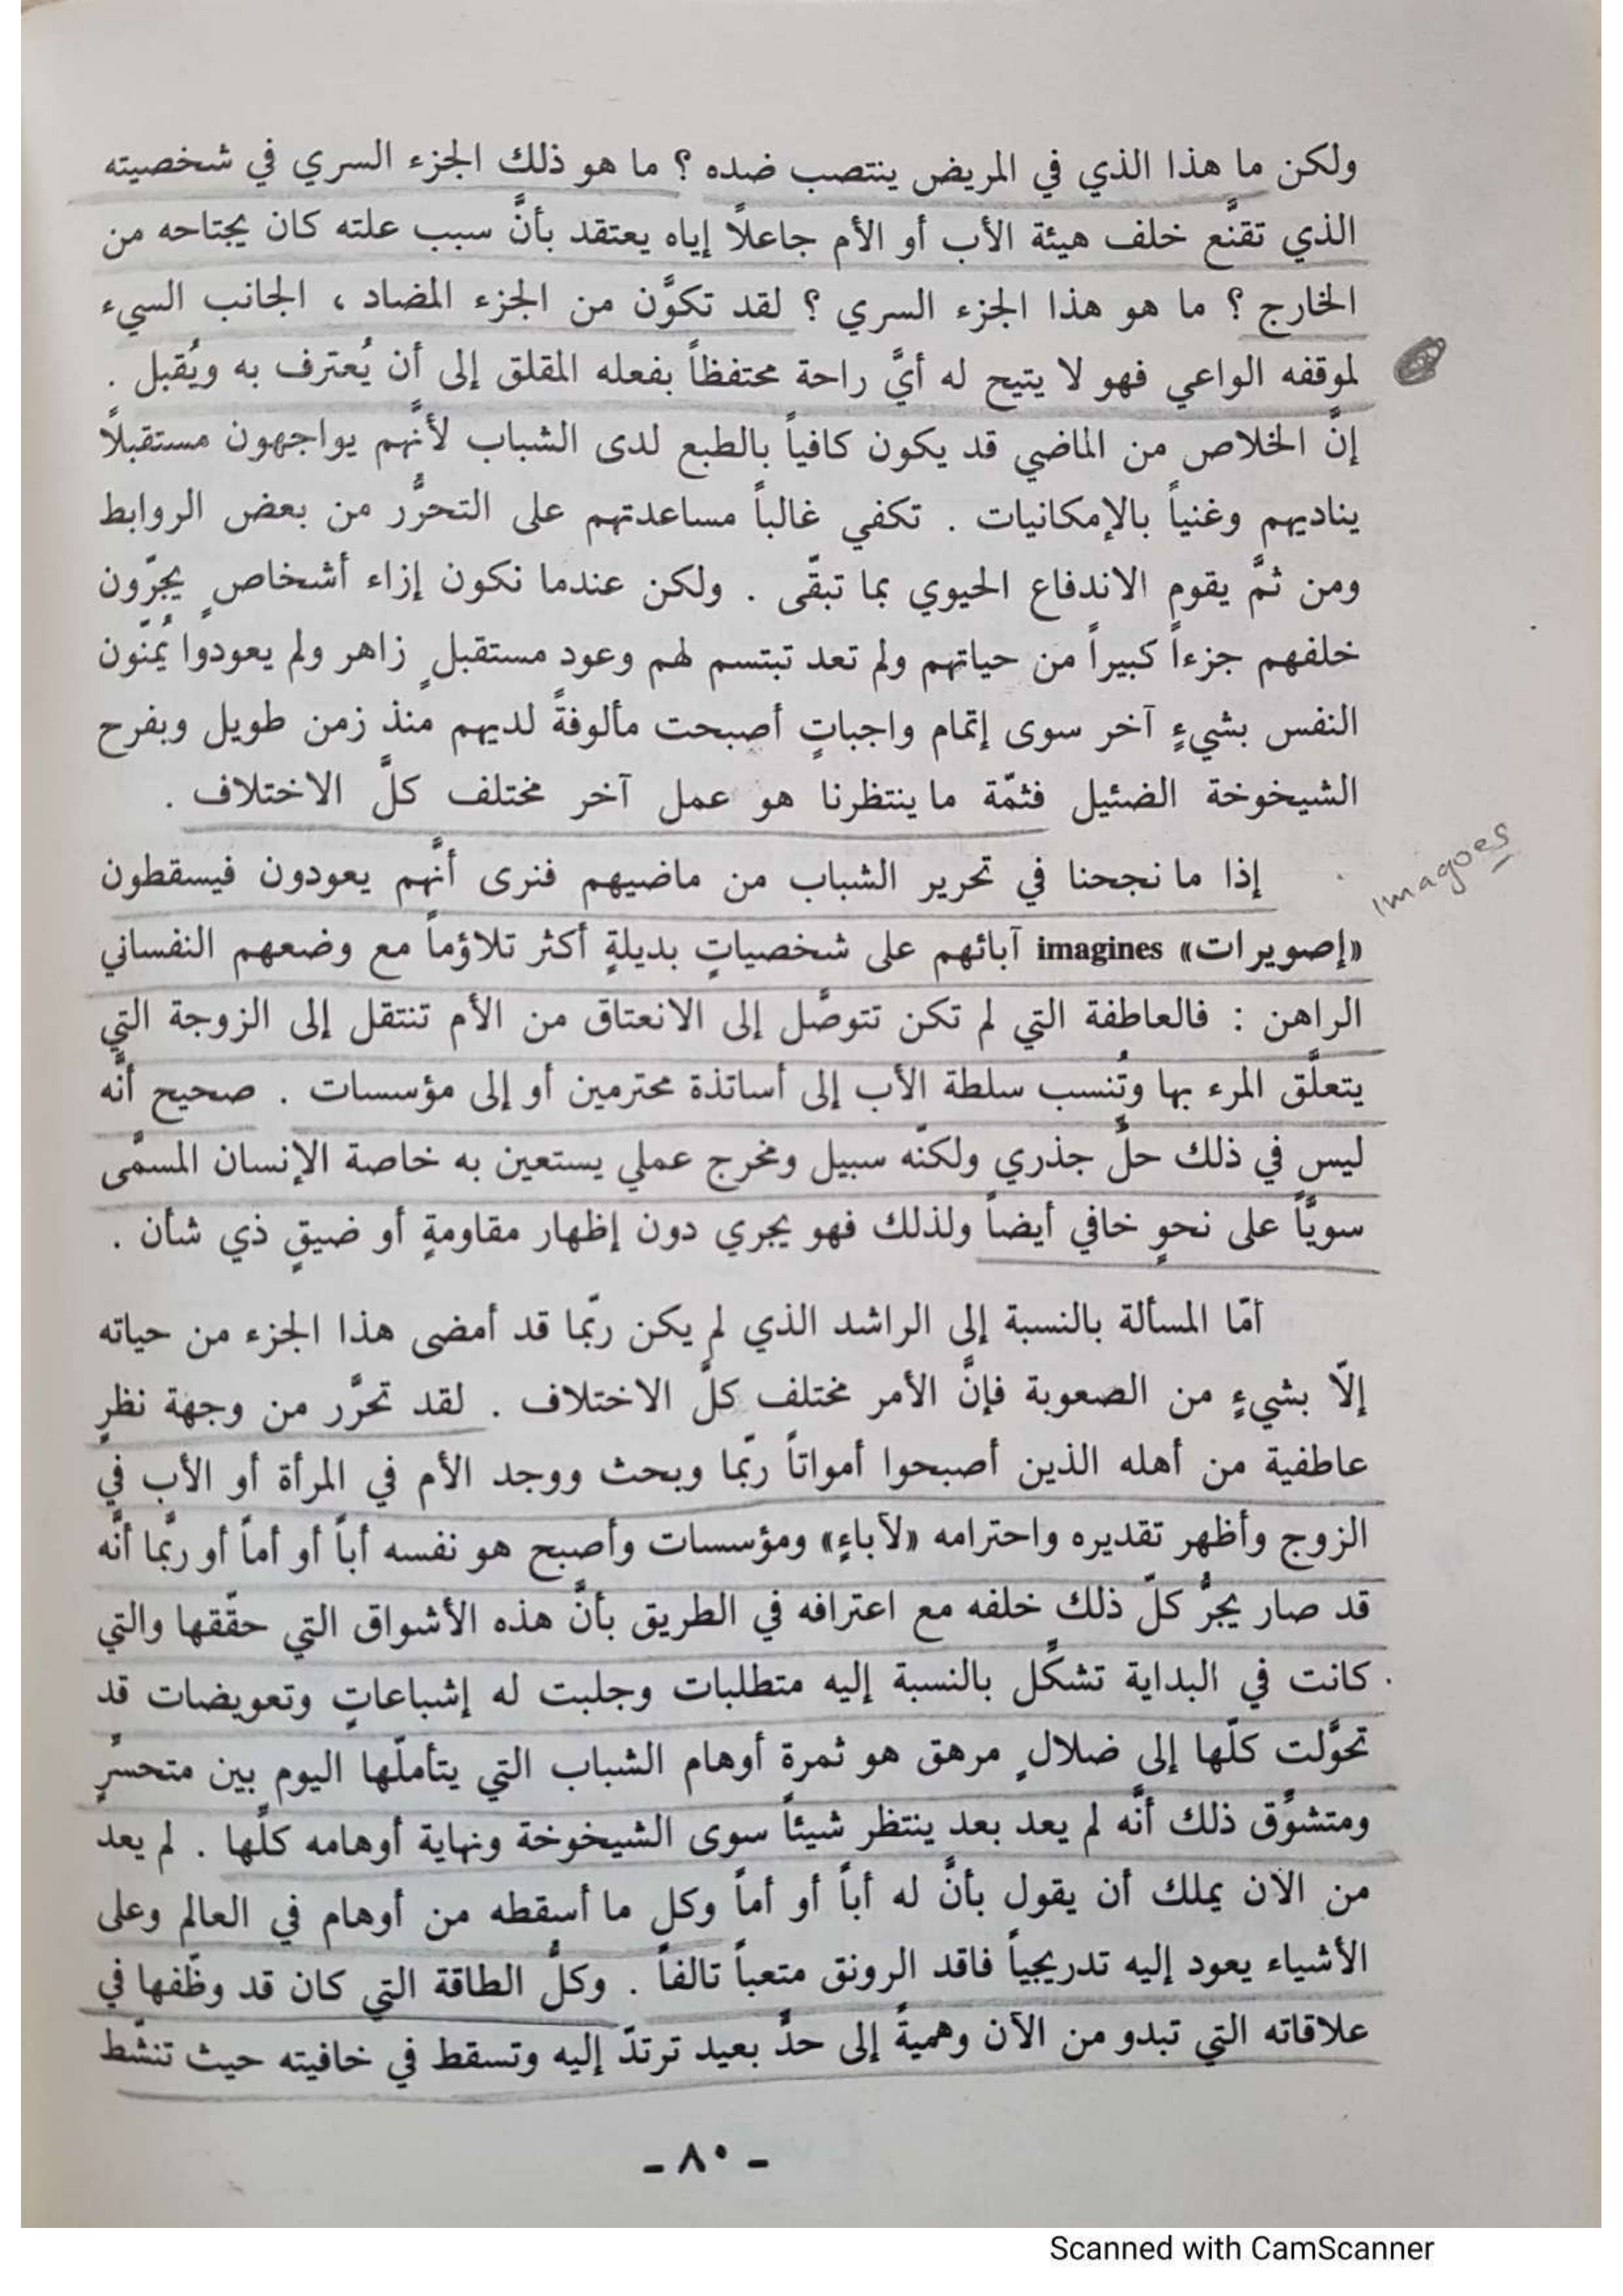 ولكن ما هذا الذي في المريض ينتصب ضده ؟ ما هو ذلك الجزء السري في شخصيته
الذي تقنَّع خلف هيئة الأب أو الأم جاعلًا إياه يعتقد بأنَّ سبب علته كان يجتاحه من
الخارج ؟ ما هو هذا الجزء السري ؟ لقد تكوَّن من الجزء المضاد ، الجانب السيء
لموقفه الواعي فهو لا يتيح له أيَّ راحة محتفظاً بفعله المقلق إلى أن يُعترف به ويُقبل .
إنَّ الخلاص من الماضي قد يكون كافياً بالطبع لدى الشباب لأنَّهم يواجهون مستقبلاً
يناديهم وغنياً بالإمكانيات . تكفي غالباً مساعدتهم على التحرُّر من بعض الروابط
ومن ثمَّ يقوم الاندفاع الحيوي بما تبقّى . ولكن عندما نكون إزاء أشخاصٍ يجرّون
خلفهم جزءاً كبيراً من حياتهم ولم تعد تبتسم لهم وعود مستقبلٍ زاهر ولم يعودوا يُمنّون
النفس بشيءٍ آخر سوى إتمام واجباتٍ أصبحت مألوفةً لديهم منذ زمن طويل وبفرح
الشيخوخة الضئيل فثمّة ما ينتظرنا هو عمل آخر مختلف كلَّ الاختلاف .
إذا ما نجحنا في تحرير الشباب من ماضيهم فنرى أنَّهم يعودون فيسقطون
imagoes
«إصويرات» imagines آبائهم على شخصياتٍ بديلةٍ أكثر تلاؤماً مع وضعهم النفساني
الراهن : فالعاطفة التي لم تكن تتوصَّل إلى الانعتاق من الأم تنتقل إلى الزوجة التي
يتعلَّق المرء بها وتُنسب سلطة الأب إلى أساتذة محترمين أو إلى مؤسسات . صحيح أنَّه
ليس في ذلك حلٌّ جذري ولكنّه سبيل ومخرج عملي يستعين به خاصة الإنسان المسمَّى
سويّاً على نحوٍ خافي أيضاً ولذلك فهو يجري دون إظهار مقاومةٍ أو ضيقٍ ذي شأن .
أمّا المسألة بالنسبة إلى الراشد الذي لم يكن ربّما قد أمضى هذا الجزء من حياته
إلّا بشيءٍ من الصعوبة فإنَّ الأمر مختلف كلَّ الاختلاف . لقد تحرَّر من وجهة نظرٍ
عاطفية من أهله الذين أصبحوا أمواتاً ربّما وبحث ووجد الأم في المرأة أو الأب في
الزوج وأظهر تقديره واحترامه «لآباءٍ» ومؤسسات وأصبح هو نفسه أباً أو أماً أو ربَّما أنَّه
قد صار يجرُّ كلّ ذلك خلفه مع اعترافه في الطريق بأنَّ هذه الأشواق التي حقّقها والتي
كانت في البداية تشكِّل بالنسبة إليه متطلبات وجلبت له إشباعاتٍ وتعويضات قد
تحوَّلت كلّها إلى ضلالٍ مرهق هو ثمرة أوهام الشباب التي يتأملّها اليوم بين متحسرٍّ
ومتشوِّق ذلك أنَّه لم يعد بعد ينتظر شيئاً سوى الشيخوخة ونهاية أوهامه كلِّها . لم يعد
من الآن يملك أن يقول بأنَّ له أباً أو أماً وكل ما أسقطه من أوهام في العالم وعلى
الأشياء يعود إليه تدريجياً فاقد الرونق متعباً تالفاً . وكلُّ الطاقة التي كان قد وظّفها في
علاقاته التي تبدو من الآن وهميةً إلى حدٍّ بعيد ترتدّ إليه وتسقط في خافيته حيث تنشّط
- ٨٠ -
Scanned with CamScanner